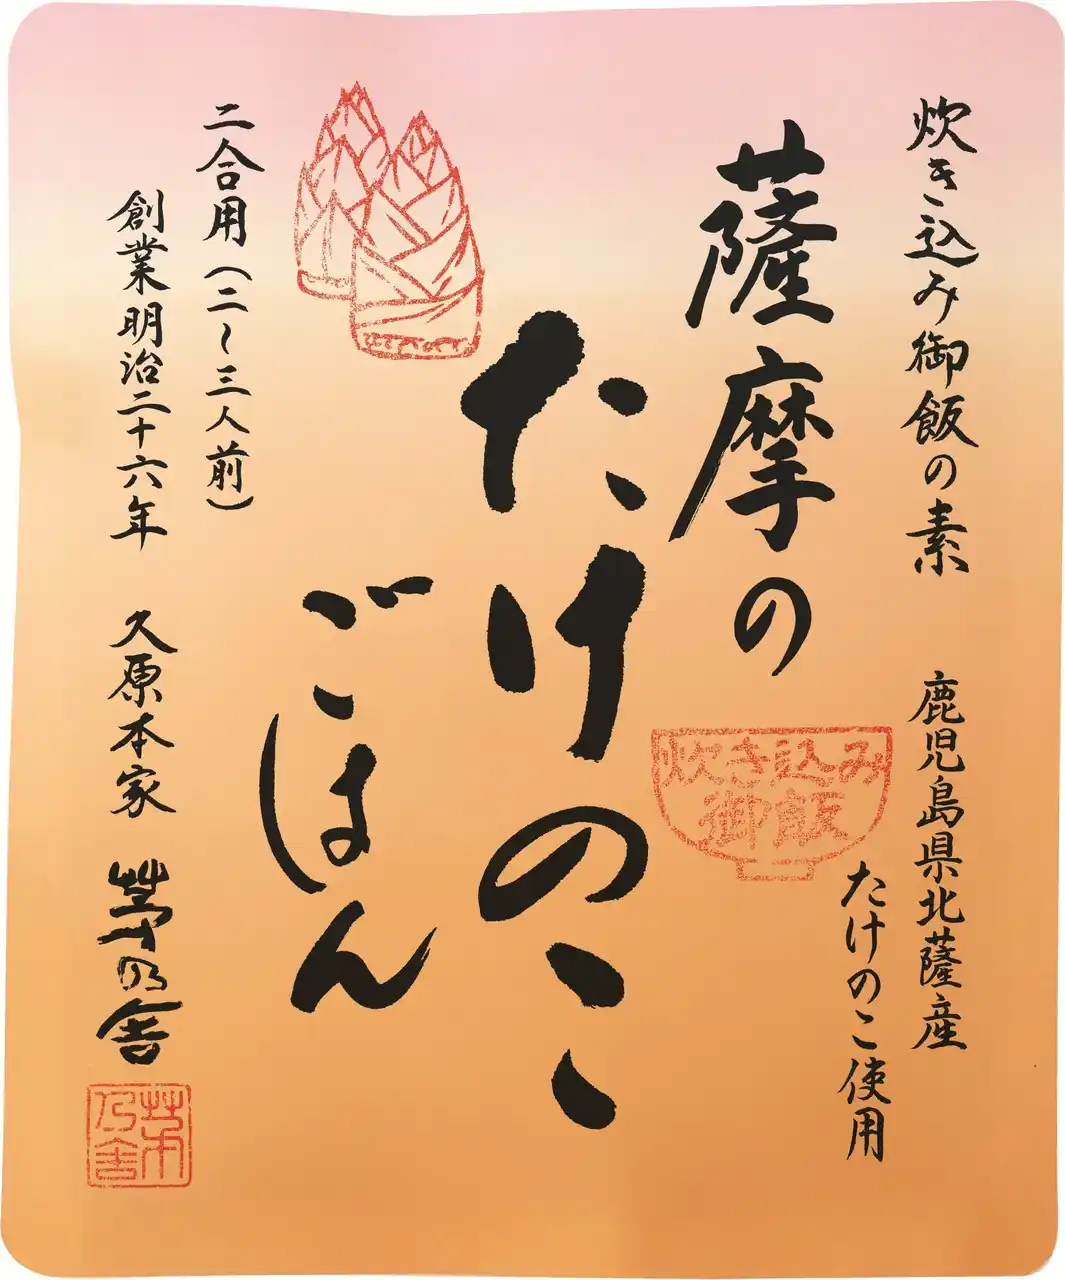 炊き込み御飯の素
鹿児島県北薩産
たけのこ使用
薩摩の
炊き込み
御飯
たけのこ
ごはん
二合用(二〜三人前)
創業明治二十六年
久原本家
茅乃舎
茅乃舎